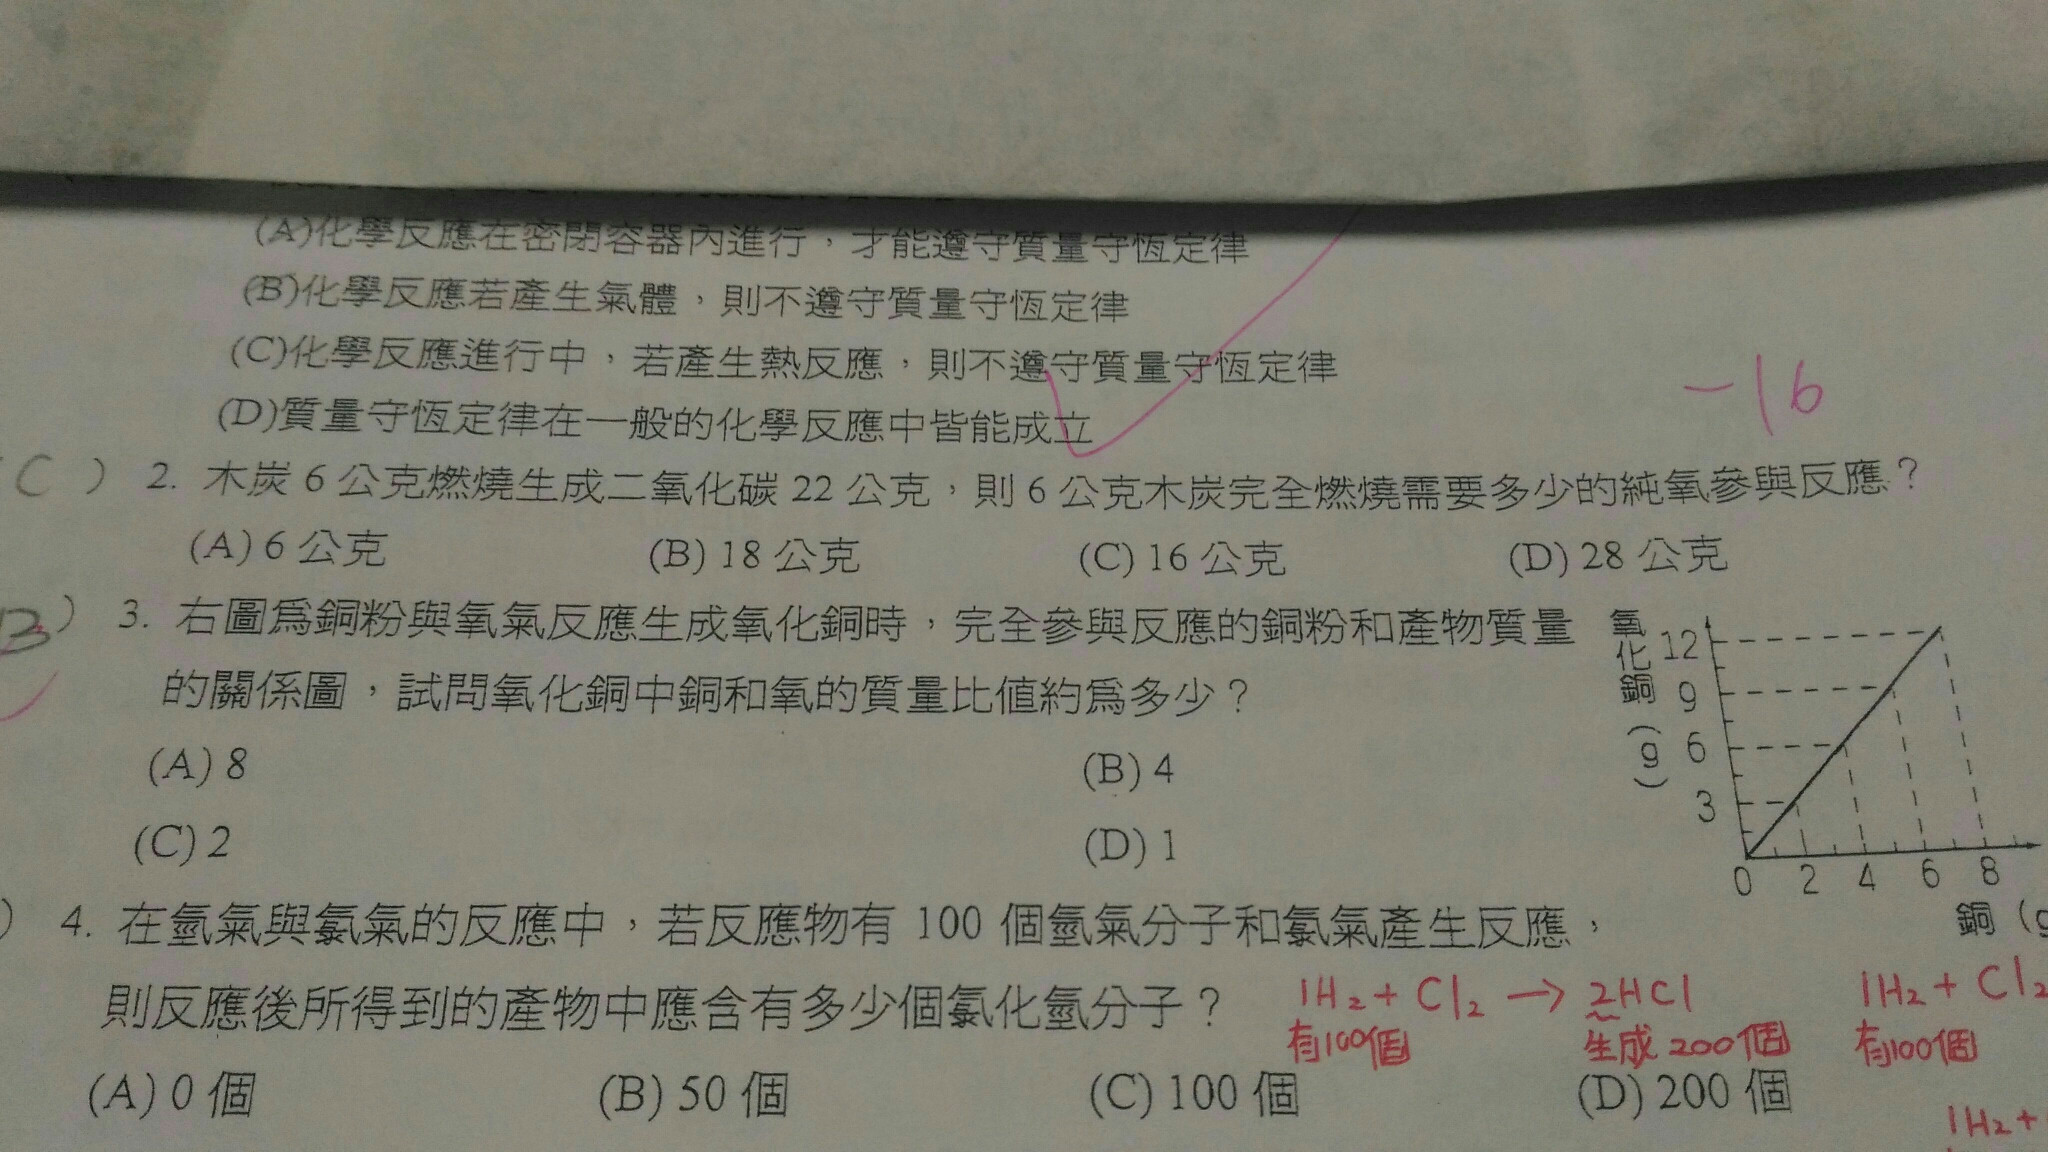 (A)化學反應在密閉容器內進行，才能遵守質量守恆定律
(B)化學反應若產生氣體，則不遵守質量守恆定律
(C)化學反應進行中，若產生熱反應，則不遵守質量守恆定律
(D)質量守恆定律在一般的化學反應中皆能成立
-16
(C) 2. 木炭 6 公克燃燒生成二氧化碳 22 公克，則 6 公克木炭完全燃燒需要多少的純氧參與反應？
(A) 6 公克 (B) 18 公克 (C) 16 公克 (D) 28 公克
B) 3. 右圖為銅粉與氧氣反應生成氧化銅時，完全參與反應的銅粉和產物質量
的關係圖，試問氧化銅中銅和氧的質量比值約為多少？
(A) 8 (B) 4
(C) 2 (D) 1
氧化銅(g)
12
9
6
3
0 2 4 6 8
銅(g
) 4. 在氫氣與氯氣的反應中，若反應物有 100 個氫氣分子和氯氣產生反應，
則反應後所得到的產物中應含有多少個氯化氫分子？
1H₂ + Cl₂ → 2HCl
有100個 生成 200個
1H₂ + Cl₂
有100個
(A) 0 個 (B) 50 個 (C) 100 個 (D) 200 個
1H₂ +